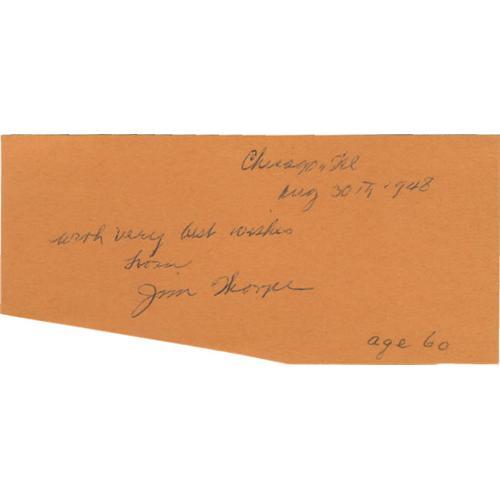 Chicago, Ill
Aug 30th, 1948
with very best wishes
from
Jim Thorpe
age 60